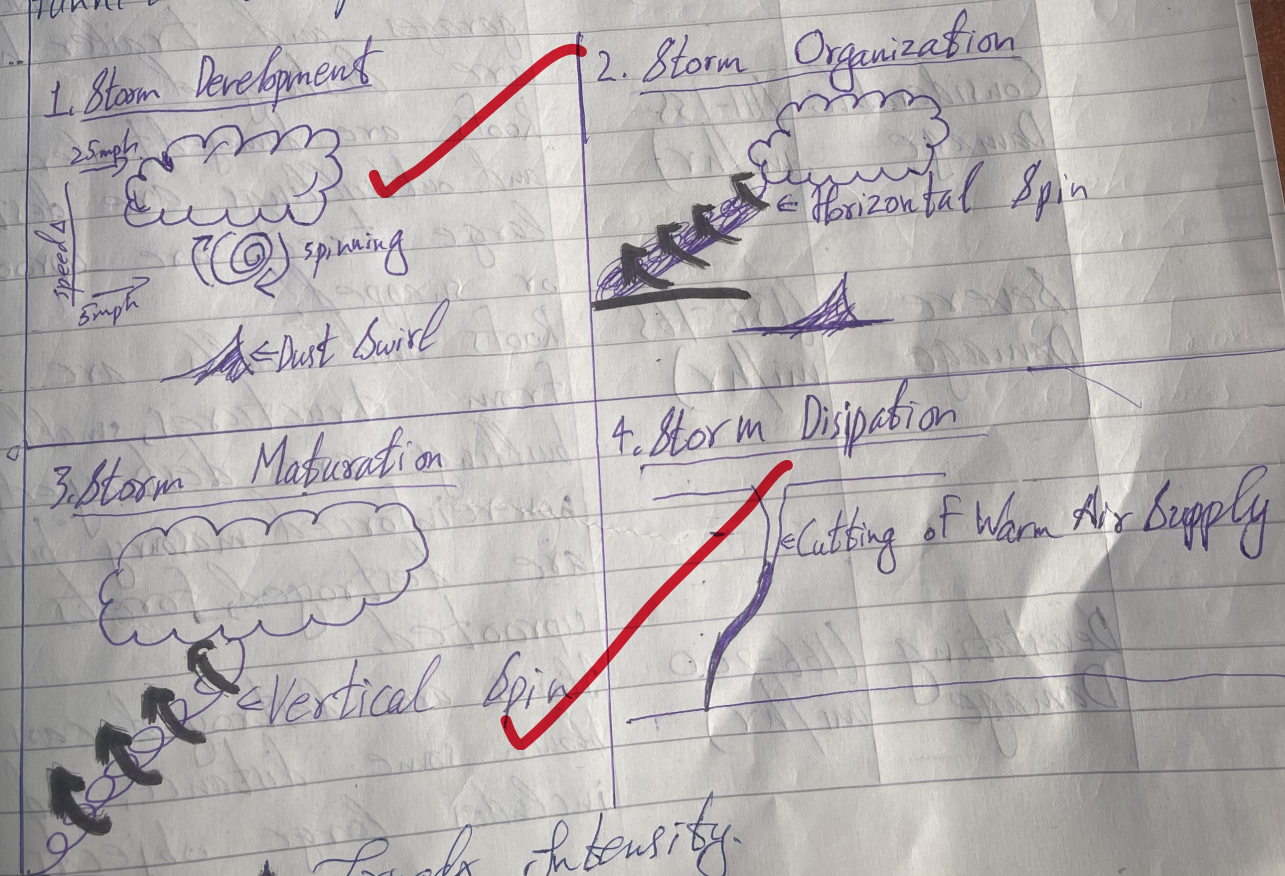 1. Storm Development
25mph
speed Δ
5mph
spinning
Dust Swirl
2. Storm Organization
Horizontal Spin
3. Storm Maturation
Vertical Spin
4. Storm Disipation
Cutting of Warm Air Supply
intensity.